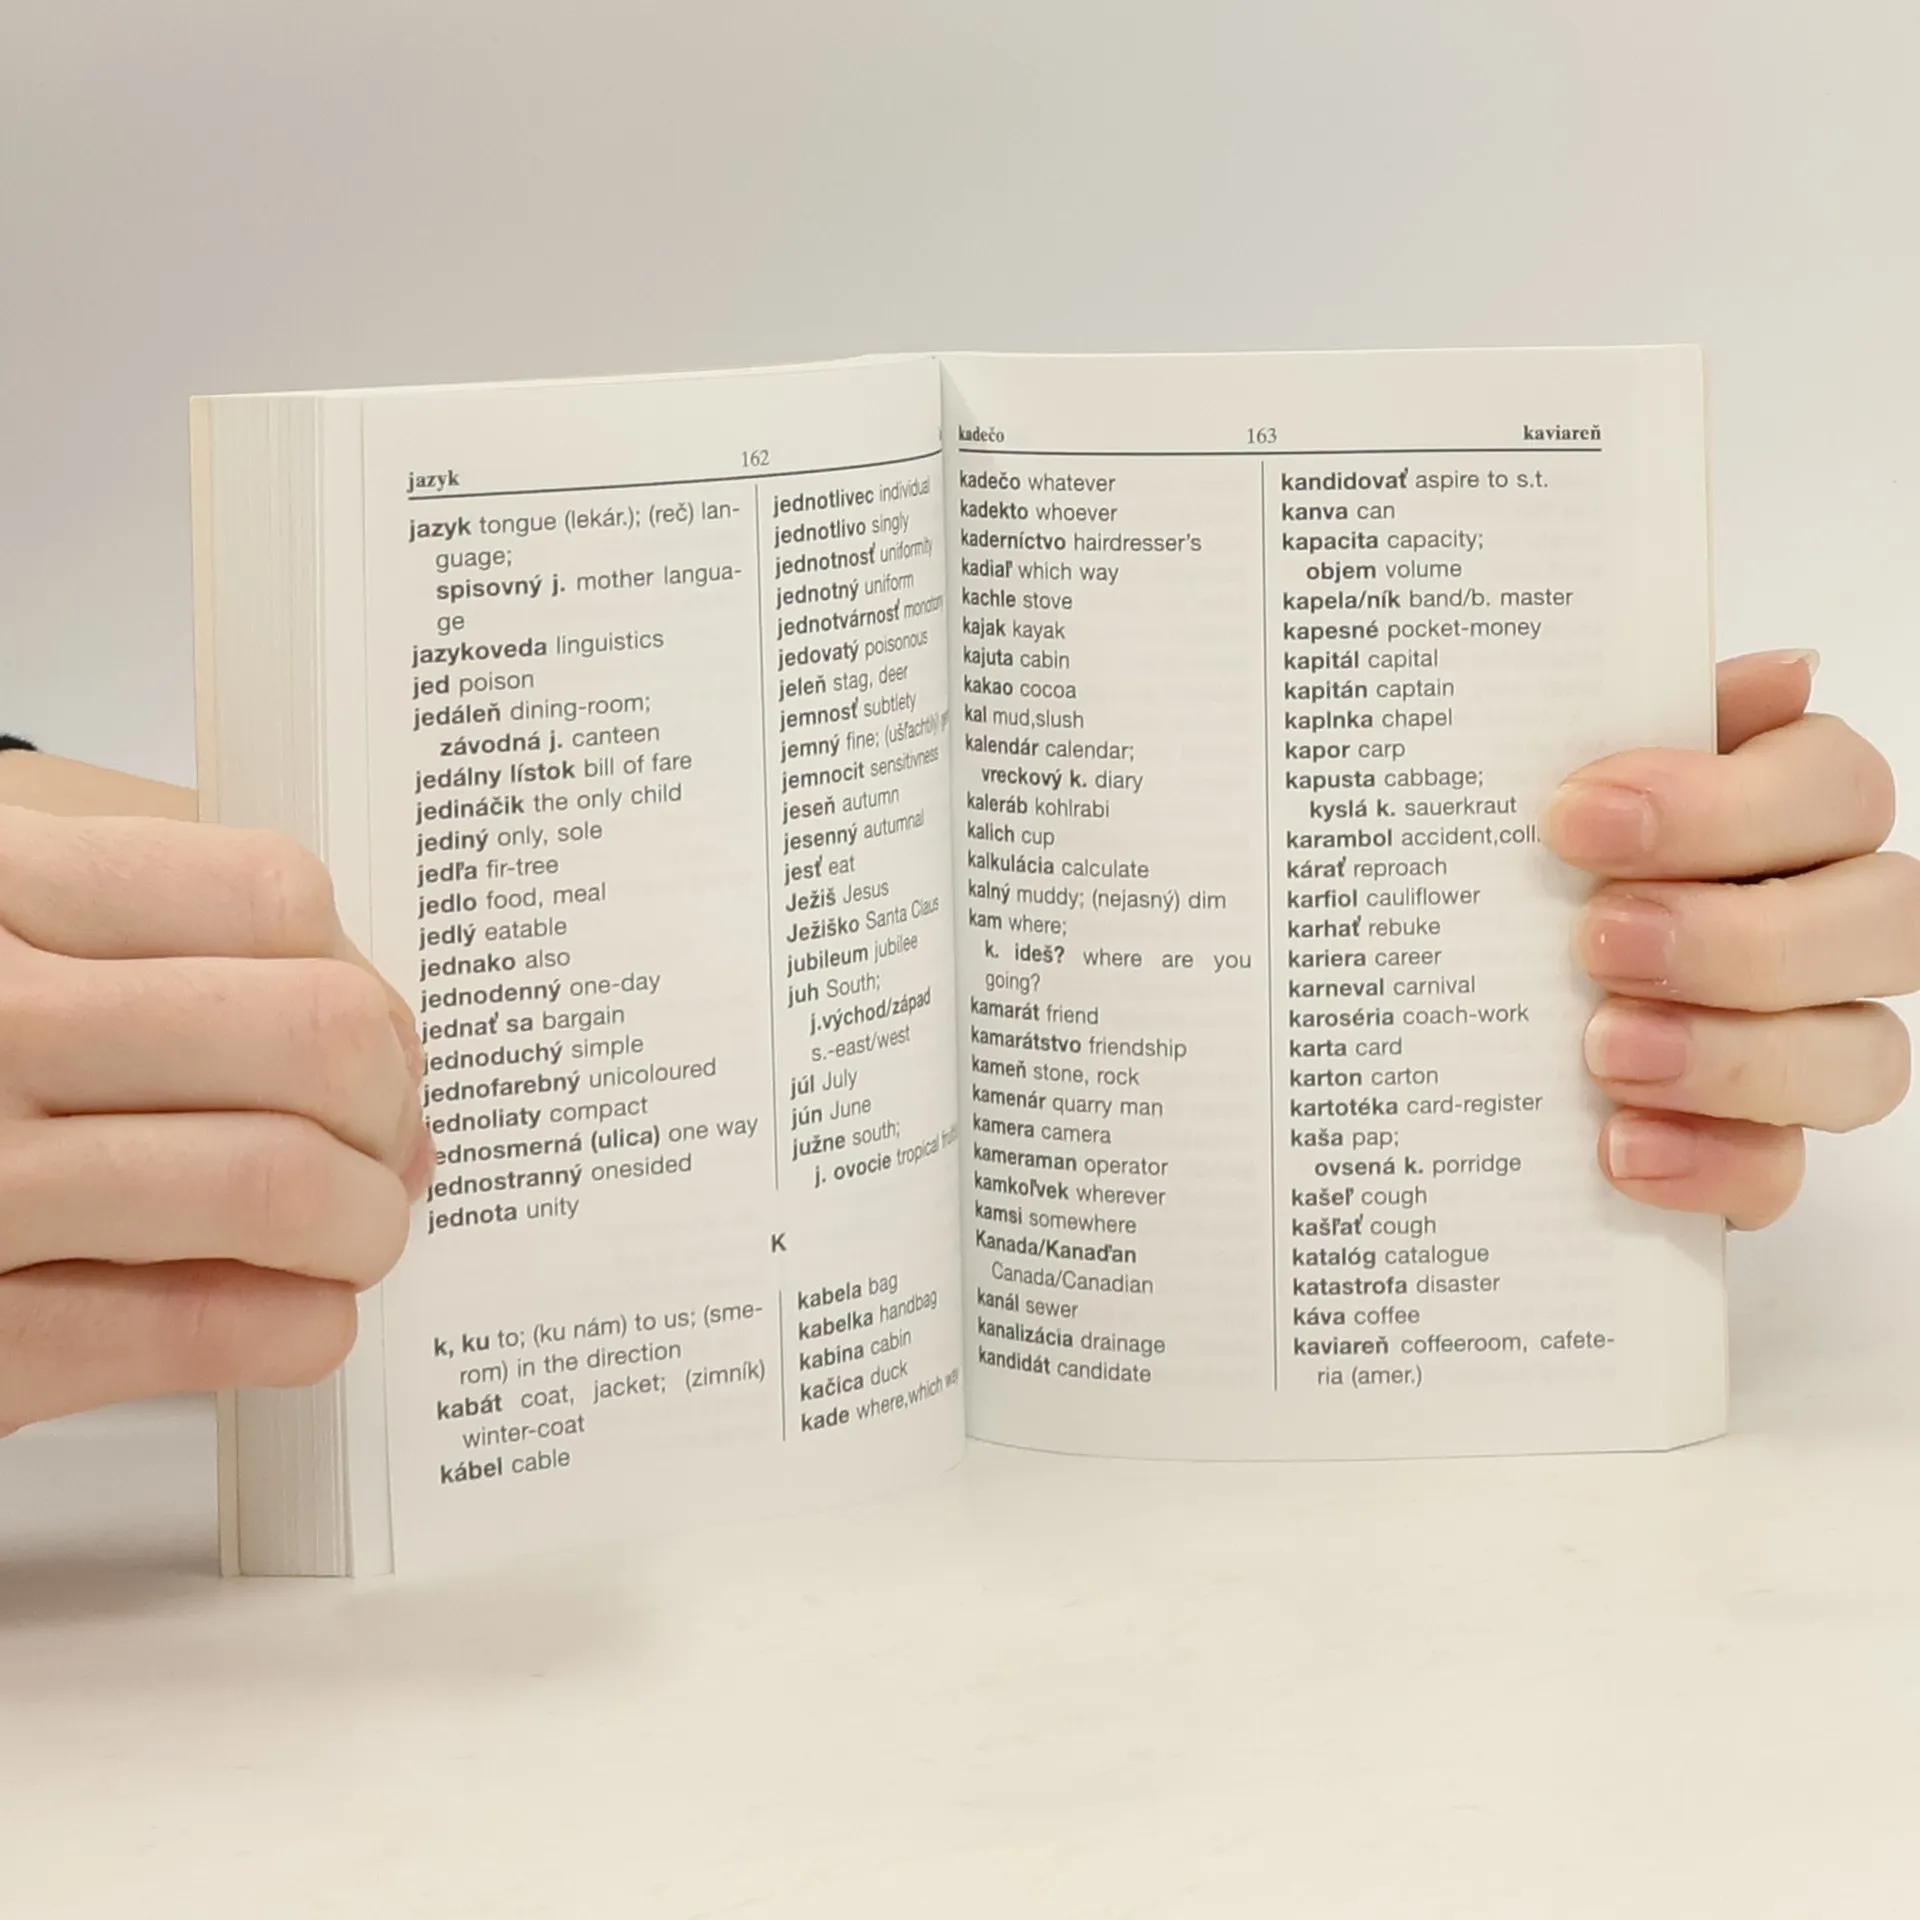 jazyk
162
jazyk tongue (lekár.); (reč) lan-
guage;
spisovný j. mother langua-
ge
jazykoveda linguistics
jed poison
jedáleň dining-room;
závodná j. canteen
jedálny lístok bill of fare
jedináčik the only child
jediný only, sole
jedľa fir-tree
jedlo food, meal
jedlý eatable
jednako also
jednodenný one-day
jednať sa bargain
jednoduchý simple
jednofarebný unicoloured
jednoliaty compact
ednosmerná (ulica) one way
jednostranný onesided
jednota unity
jednotlivec individual
jednotlivo singly
jednotnosť uniformity
jednotný uniform
jednotvárnosť
jedovatý poisonous
jeleň stag, deer
jemnosť subtlety
jemný fine; (ušľachtilý)
jemnocit sensitivness
jeseň autumn
jesenný autumnal
jesť eat
Ježiš Jesus
Ježiško Santa Claus
jubileum jubilee
juh South;
j.východ/západ
s.-east/west
júl July
jún June
južne south;
j. ovocie tropical
K
k, ku to; (ku nám) to us; (sme-
rom) in the direction
kabát coat, jacket; (zimník)
winter-coat
kábel cable
kabela bag
kabelka handbag
kabína cabin
kačica duck
kade where,which way
kadečo
163
kaviareň
kadečo whatever
kadekto whoever
kaderníctvo hairdresser's
kadiaľ which way
kachle stove
kajak kayak
kajuta cabin
kakao cocoa
kal mud,slush
kalendár calendar;
vreckový k. diary
kaleráb kohlrabi
kalich cup
kalkulácia calculate
kalný muddy; (nejasný) dim
kam where;
k. ideš? where are you
going?
kamarát friend
kamarátstvo friendship
kameň stone, rock
kamenár quarry man
kamera camera
kameraman operator
kamkoľvek wherever
kamsi somewhere
Kanada/Kanaďan
Canada/Canadian
kanál sewer
kanalizácia drainage
kandidát candidate
kandidovať aspire to s.t.
kanva can
kapacita capacity;
objem volume
kapela/ník band/b. master
kapesné pocket-money
kapitál capital
kapitán captain
kaplnka chapel
kapor carp
kapusta cabbage;
kyslá k. sauerkraut
karambol accident,coll.
kárať reproach
karfiol cauliflower
karhať rebuke
kariera career
karneval carnival
karoséria coach-work
karta card
karton carton
kartotéka card-register
kaša pap;
ovsená k. porridge
kašeľ cough
kašľať cough
katalóg catalogue
katastrofa disaster
káva coffee
kaviareň coffeeroom, cafete-
ria (amer.)